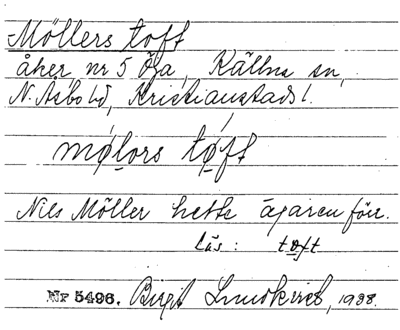 Möllers toft
åker nr 5 Öja, Källna sn,
N. Åsbo hd, Kristianstads l.
mølors tøft
Nils Möller hette ägaren förr.
läs: tøft
Nr 5496. Birgit Lundkvist, 1938.